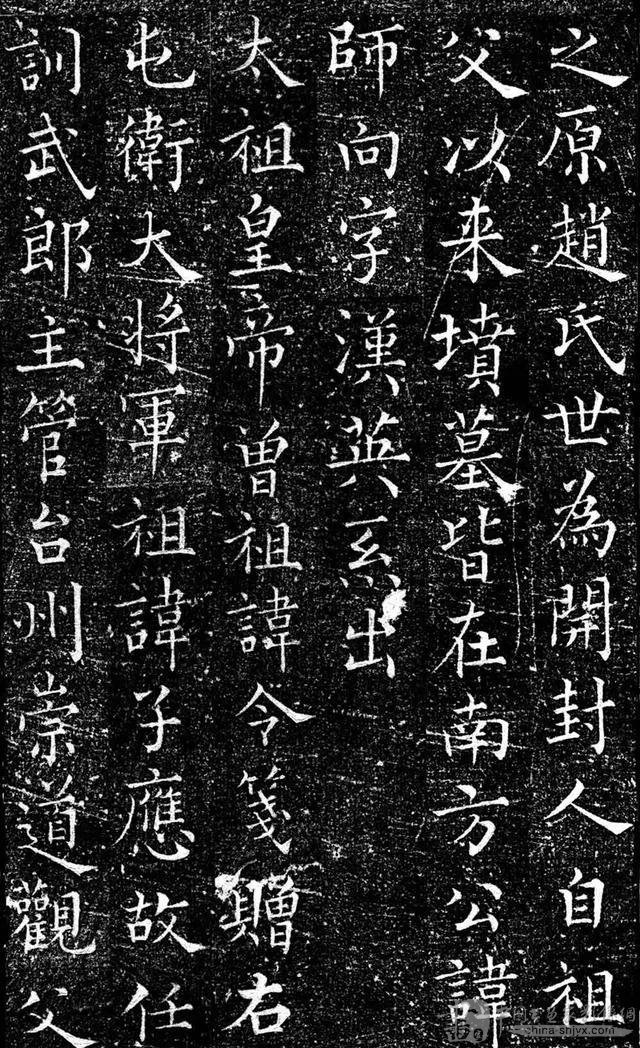 之原趙氏世為開封人自祖
父以来墳墓皆在南方公諱
師向字漢英系出
太祖皇帝曾祖諱令箋贈右
屯衛大將軍祖諱子應故任
訓武郎主管台州崇道觀父
china-shjvx.com